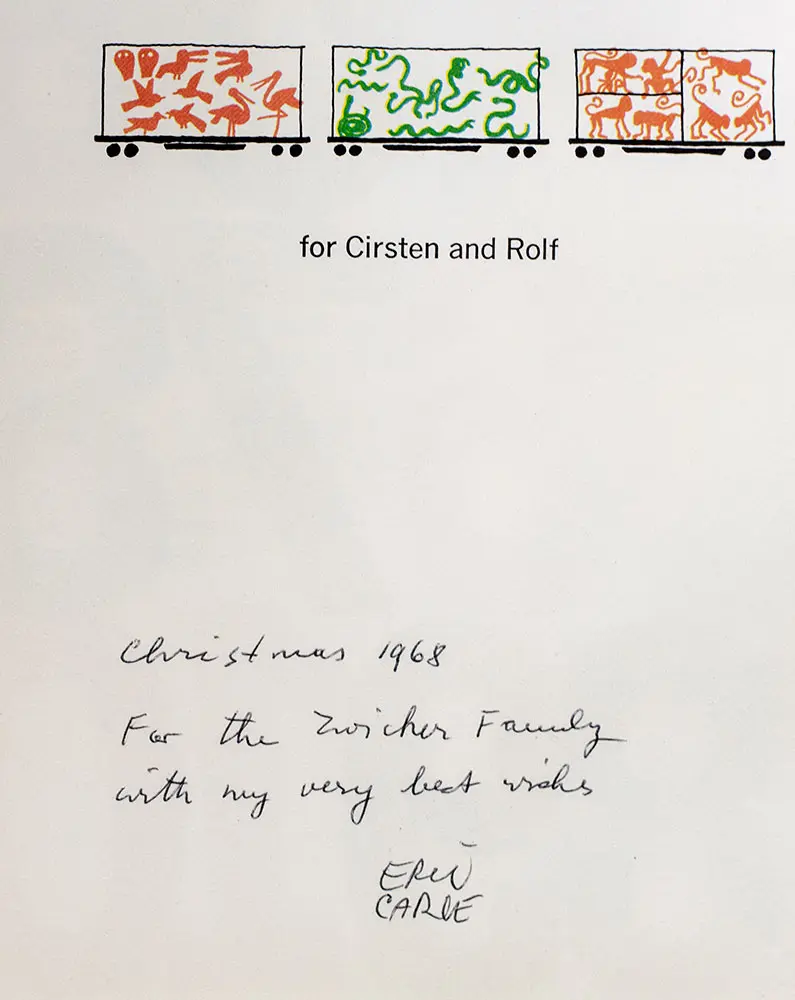 for Cirsten and Rolf
Christmas 1968
For the Zwicher Family
with my very best wishes
ERIC
CARLE